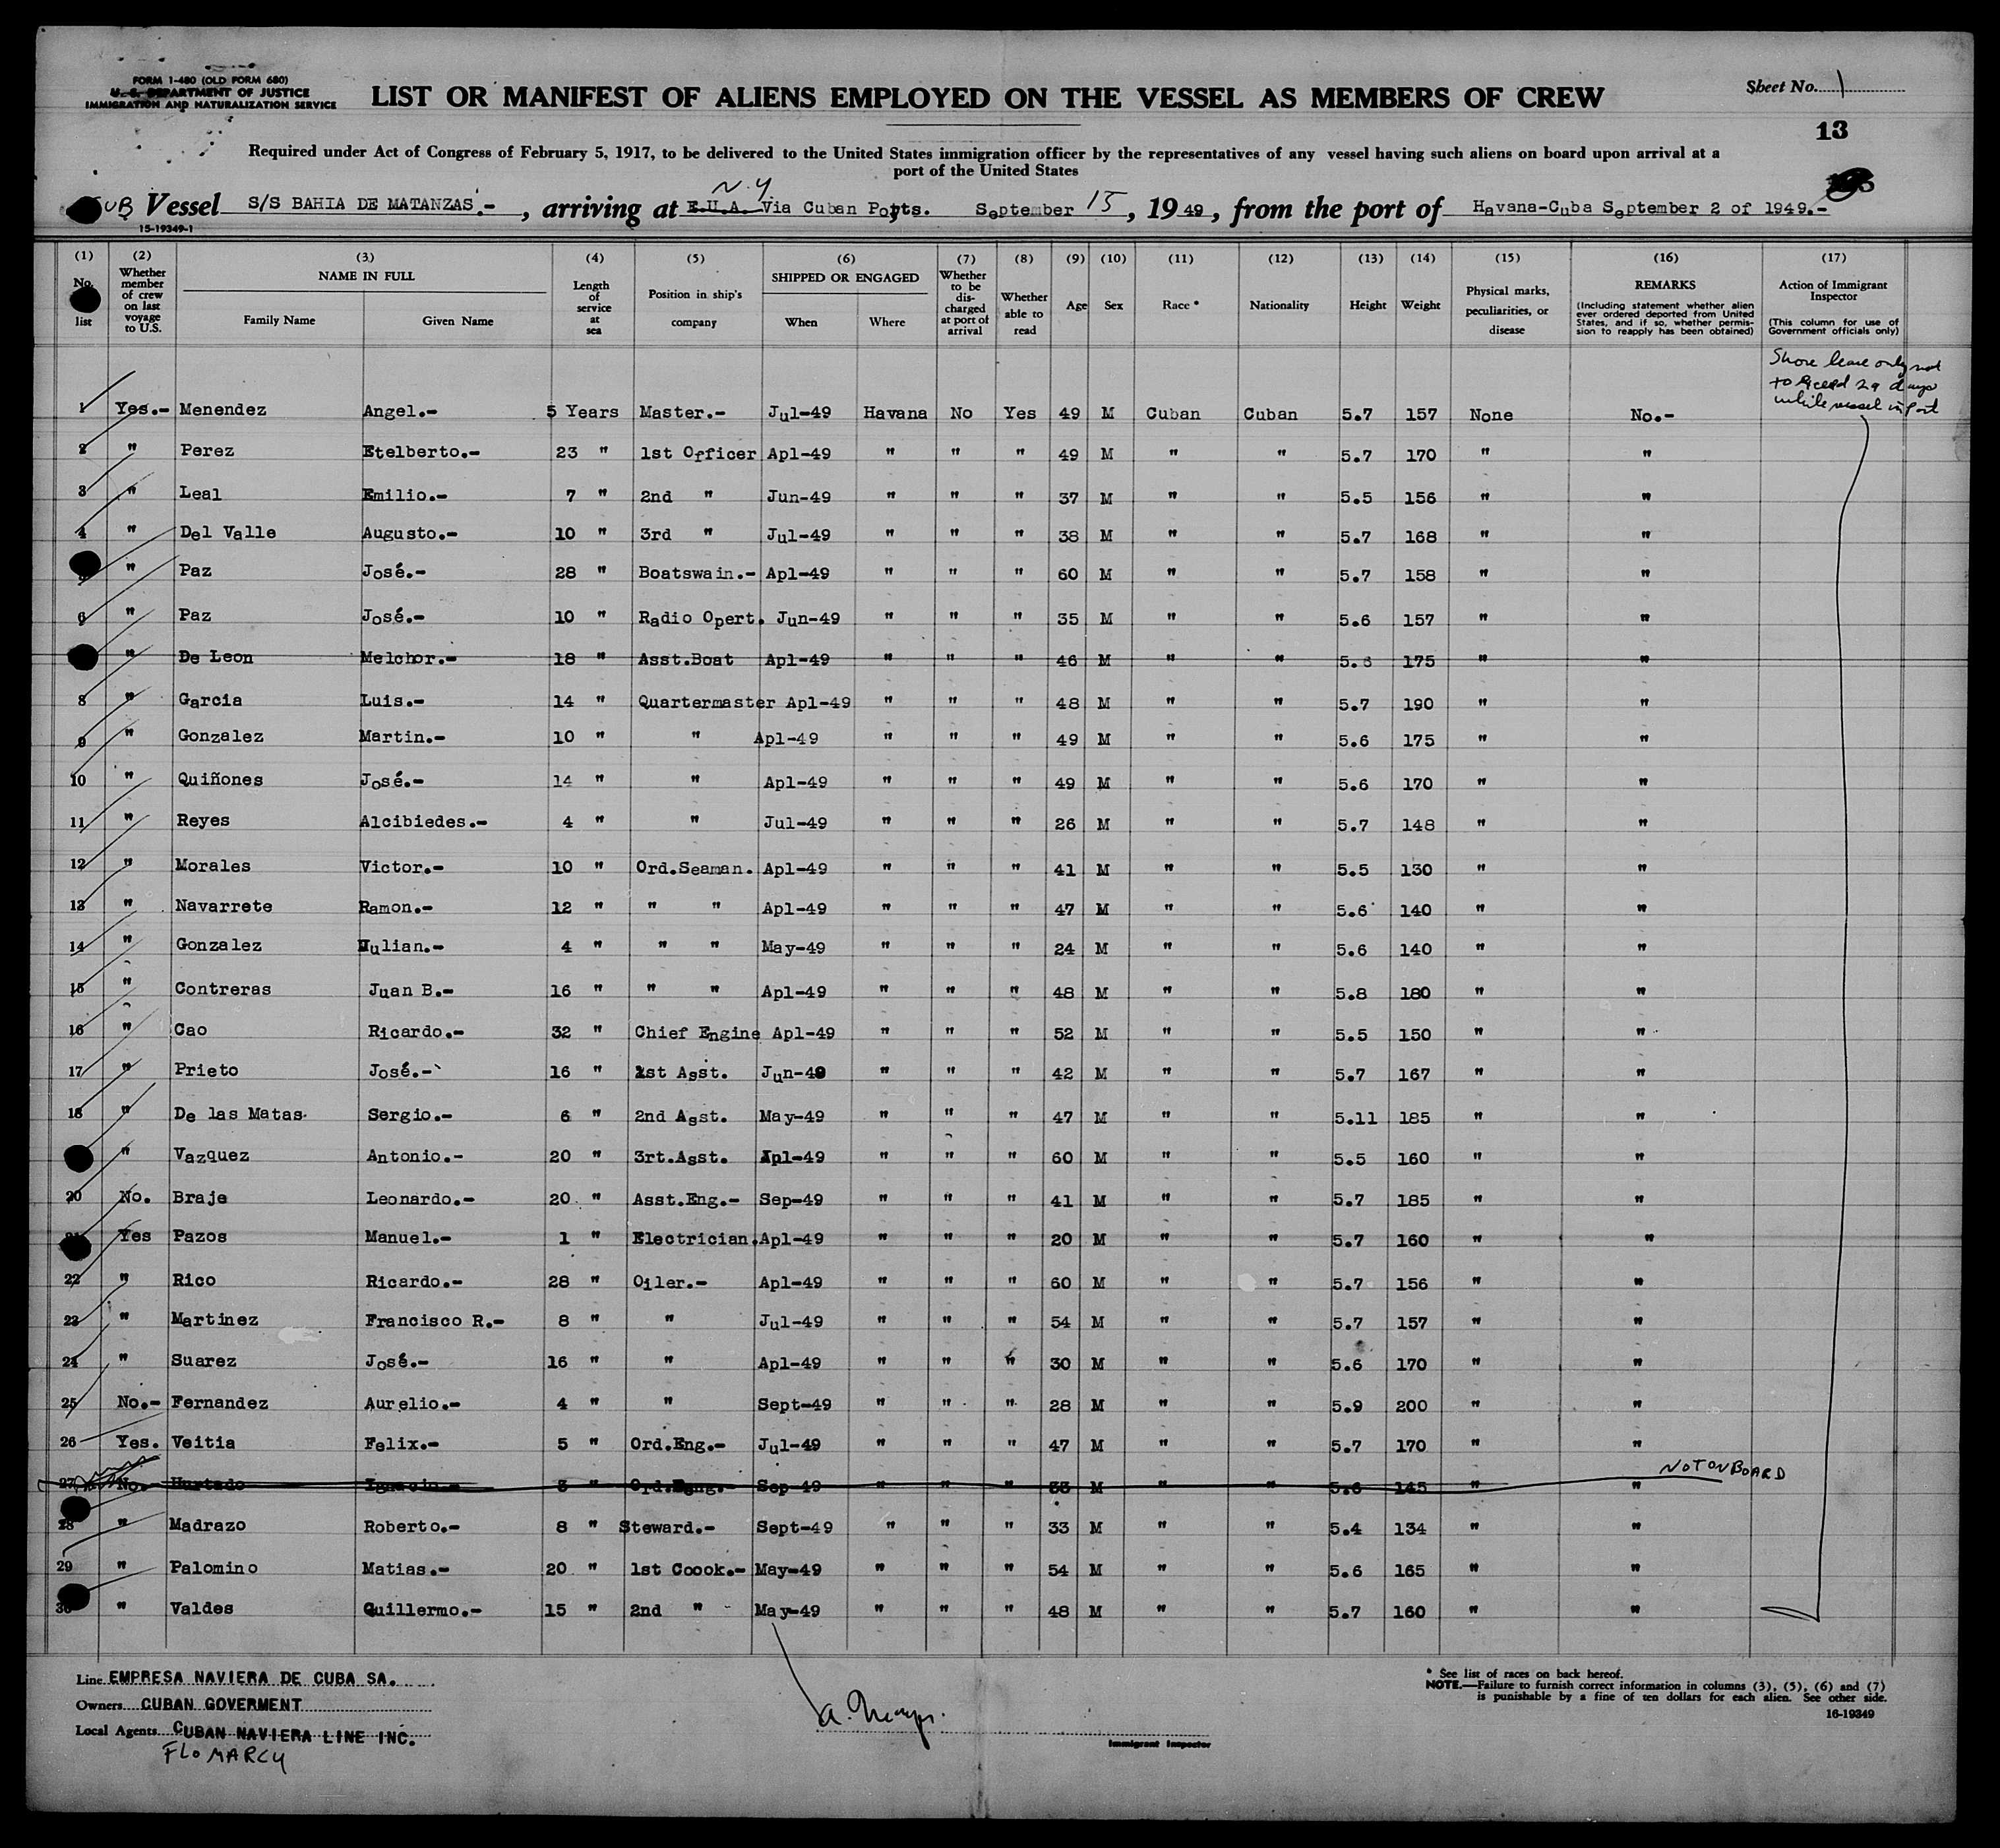 FORM 1-480 (OLD FORM 680)
U. S. DEPARTMENT OF JUSTICE
IMMIGRATION AND NATURALIZATION SERVICE
LIST OR MANIFEST OF ALIENS EMPLOYED ON THE VESSEL AS MEMBERS OF CREW
Sheet No. 1
13
Required under Act of Congress of February 5, 1917, to be delivered to the United States immigration officer by the representatives of any vessel having such aliens on board upon arrival at a
port of the United States
N.Y
Vessel S/S BAHIA DE MATANZAS.- , arriving at E.U.A. Via Cuban Poyts. September 15, 19 49, from the port of Havana-Cuba September 2 of 1949.-
15-19349-1
(1) (2) (3) (4) (5) (6) (7) (8) (9) (10) (11) (12) (13) (14) (15) (16) (17)
No. list
Whether member of crew on last voyage to U.S.
NAME IN FULL
Family Name Given Name
Length of service at sea
Position in ship's company
SHIPPED OR ENGAGED
When Where
Whether to be discharged at port of arrival
Whether able to read
Age Sex Race * Nationality Height Weight
Physical marks, peculiarities, or disease
REMARKS
(Including statement whether alien ever ordered deported from United States, and if so, whether permission to reapply has been obtained)
Action of Immigrant Inspector
(This column for use of Government officials only)
Shore leave only not
to exceed 29 days
while vessel in Port
1 Yes.- Menendez Angel.- 5 Years Master.- Jul-49 Havana No Yes 49 M Cuban Cuban 5.7 157 None No.-
2 " Perez Etelberto.- 23 " 1st Officer Apl-49 " " " 49 M " " 5.7 170 " "
3 " Leal Emilio.- 7 " 2nd " Jun-49 " " " 37 M " " 5.5 156 " "
4 " Del Valle Augusto.- 10 " 3rd " Jul-49 " " " 38 M " " 5.7 168 " "
" Paz José.- 28 " Boatswain.- Apl-49 " " " 60 M " " 5.7 158 " "
6 " Paz José.- 10 " Radio Opert. Jun-49 " " " 35 M " " 5.6 157 " "
" De Leon Melchor.- 18 " Asst.Boat Apl-49 " " " 46 M " " 5.8 175 " "
8 " Garcia Luis.- 14 " Quartermaster Apl-49 " " " 48 M " " 5.7 190 " "
9 " Gonzalez Martin.- 10 " " Apl-49 " " " 49 M " " 5.6 175 " "
10 " Quiñones José.- 14 " " Apl-49 " " " 49 M " " 5.6 170 " "
11 " Reyes Alcibiedes.- 4 " " Jul-49 " " " 26 M " " 5.7 148 " "
12 " Morales Victor.- 10 " Ord.Seaman. Apl-49 " " " 41 M " " 5.5 130 " "
13 " Navarrete Ramon.- 12 " " " Apl-49 " " " 47 M " " 5.6 140 " "
14 " Gonzalez Hulian.- 4 " " " May-49 " " " 24 M " " 5.6 140 " "
15 " Contreras Juan B.- 16 " " " Apl-49 " " " 48 M " " 5.8 180 " "
16 " Cao Ricardo.- 32 " Chief Engine Apl-49 " " " 52 M " " 5.5 150 " "
17 " Prieto José.- 16 " 1st Asst. Jun-49 " " " 42 M " " 5.7 167 " "
18 " De las Matas Sergio.- 6 " 2nd Asst. May-49 " " " 47 M " " 5.11 185 " "
" Vazquez Antonio.- 20 " 3rt.Asst. Apl-49 " " " 60 M " " 5.5 160 " "
20 No. Braje Leonardo.- 20 " Asst.Eng.- Sep-49 " " " 41 M " " 5.7 185 " "
21 Yes Pazos Manuel.- 1 " Electrician. Apl-49 " " " 20 M " " 5.7 160 " "
22 " Rico Ricardo.- 28 " Oiler.- Apl-49 " " " 60 M " " 5.7 156 " "
23 " Martinez Francisco R.- 8 " " Jul-49 " " " 54 M " " 5.7 157 " "
24 " Suarez José.- 16 " " Apl-49 " " " 30 M " " 5.6 170 " "
25 No.- Fernandez Aurelio.- 4 " " Sept-49 " " " 28 M " " 5.9 200 " "
26 Yes. Veitia Felix.- 5 " Ord.Eng.- Jul-49 " " " 47 M " " 5.7 170 " "
27 No.- Hurtado Ignacio.- 3 " Ord.Eng.- Sep-49 " " " 33 M " " 5.6 145 " " NOT ON BOARD
28 " Madrazo Roberto.- 8 " Steward.- Sept-49 " " " 33 M " " 5.4 134 " "
29 " Palomino Matias.- 20 " 1st Coook.- May-49 " " " 54 M " " 5.6 165 " "
30 " Valdes Guillermo.- 15 " 2nd " May-49 " " " 48 M " " 5.7 160 " "
Line EMPRESA NAVIERA DE CUBA SA.
Owners CUBAN GOVERMENT
Local Agents CUBAN NAVIERA LINE INC.
FLO MARCY
Immigrant Inspector
* See list of races on back hereof.
NOTE.—Failure to furnish correct information in columns (3), (5), (6) and (7)
is punishable by a fine of ten dollars for each alien. See other side.
16-19349